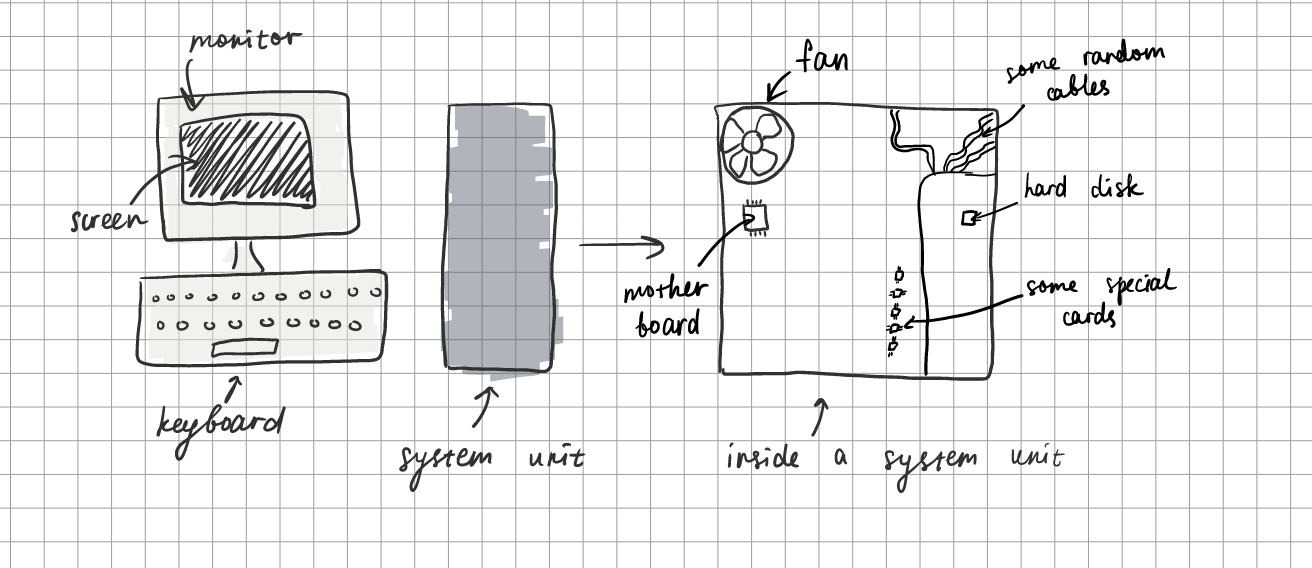 monitor
screen
keyboard
system unit
fan
some random
cables
hard disk
mother
board
some special
cards
inside a system unit